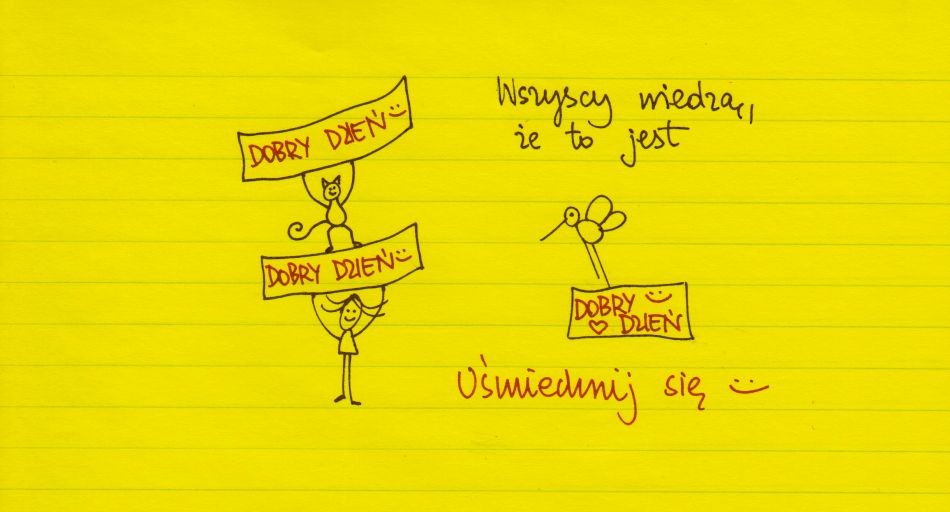 DOBRY DZIEŃ
DOBRY DZIEŃ
Wszyscy wiedzą,
że to jest
DOBRY
DZIEŃ
Uśmiechnij się